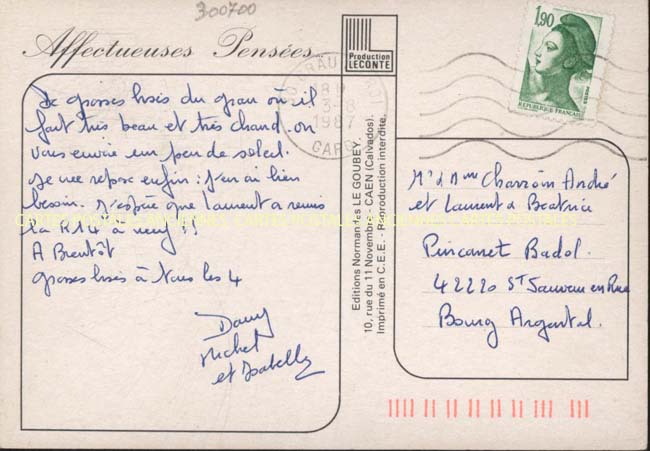 300700
Affectueuses Pensées
Production
LECONTE
1,90
REPUBLIQUE FRANÇAISE
3-8
1987
GARD
De grosses bises du grau où il
fait très beau et très chaud. on
vous envoie un peu de soleil.
Je me repose enfin : j'en ai bien
besoin. J'espère que Laurent a remis
la R14 à neuf !!
A Bientôt
grosses bises à tous les 4
Dany
Michel
et Isabelle
Editions Normandes LE GOUBEY.
10, rue du 11 Novembre - CAEN (Calvados).
Imprimé en C.E.E. - Reproduction interdite.
Mr & Mme Charroin André
et Laurent & Béatrice
Badol.
42220 St Sauveur en Rue
Bourg Argental.